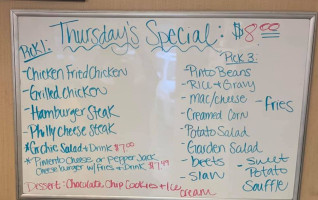 Thursday's Special: $8.00
Pick 1:
- Chicken Fried Chicken
- Grilled chicken
- Hamburger Steak
- Philly cheese steak
Salad & Drink $7.00
* Pimento Cheese or Pepper Jack
cheeseburger w/ fries & Drink $7.49
Dessert: Chocolate Chip Cookies & Ice
cream
Pick 3:
- Pinto Beans
- Rice & Gravy
- mac/cheese
- Fries
- Creamed Corn
- Potato Salad
- Garden Salad
- beets
- slaw
- Sweet
Potato
Souffle